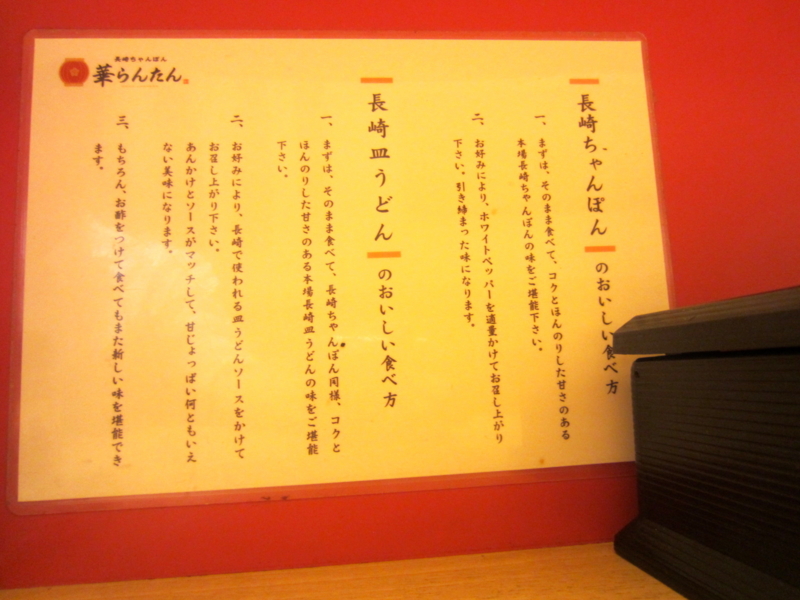 長崎ちゃんぽん
華らんたん
長崎ちゃんぽん のおいしい食べ方
一、まずは、そのまま食べて、コクとほんのりした甘さのある
本場長崎ちゃんぽんの味をご堪能下さい。
二、お好みにより、ホワイトペッパーを適量かけてお召し上がり
下さい。引き締まった味になります。
長崎皿うどん のおいしい食べ方
一、まずは、そのまま食べて、長崎ちゃんぽん同様、コクと
ほんのりした甘さのある本場長崎皿うどんの味をご堪能
下さい。
二、お好みにより、長崎で使われる皿うどんソースをかけて
お召し上がり下さい。
あんかけとソースがマッチして、甘じょっぱい何ともいえ
ない美味になります。
三、もちろん、お酢をつけて食べてもまた新しい味を堪能でき
ます。